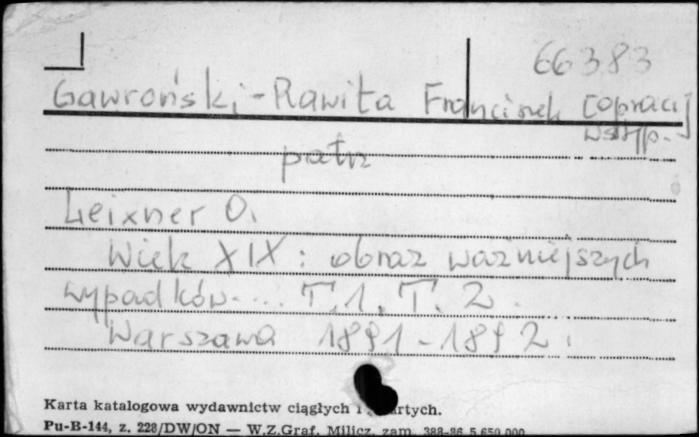 66383
Gawroński-Rawita Franciszek [oprac i]
wstęp.
patrz
Leixner O.
Wiek XIX: obraz ważniejszych
wypadków.... T.1. T. 2.
Warszawa 1891-1892.
Karta katalogowa wydawnictw ciągłych i zwartych.
Pu-B-144, z. 228/DW/ON — W.Z.Graf. Milicz, zam. 388-86 5.650.000